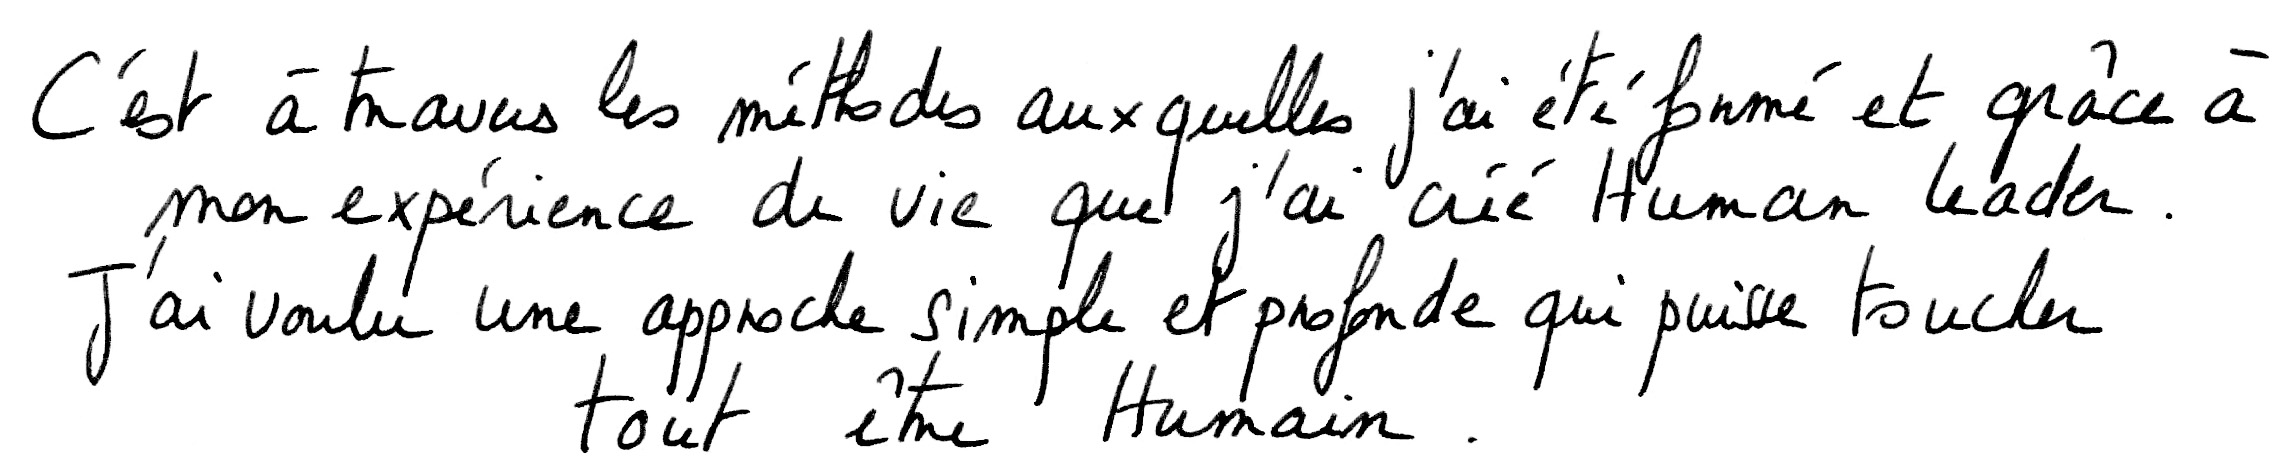 C'est à travers les méthodes auxquelles j'ai été formé et grâce à
mon expérience de vie que j'ai créé Human leader.
J'ai voulu une approche simple et profonde qui puisse toucher
tout être Humain.